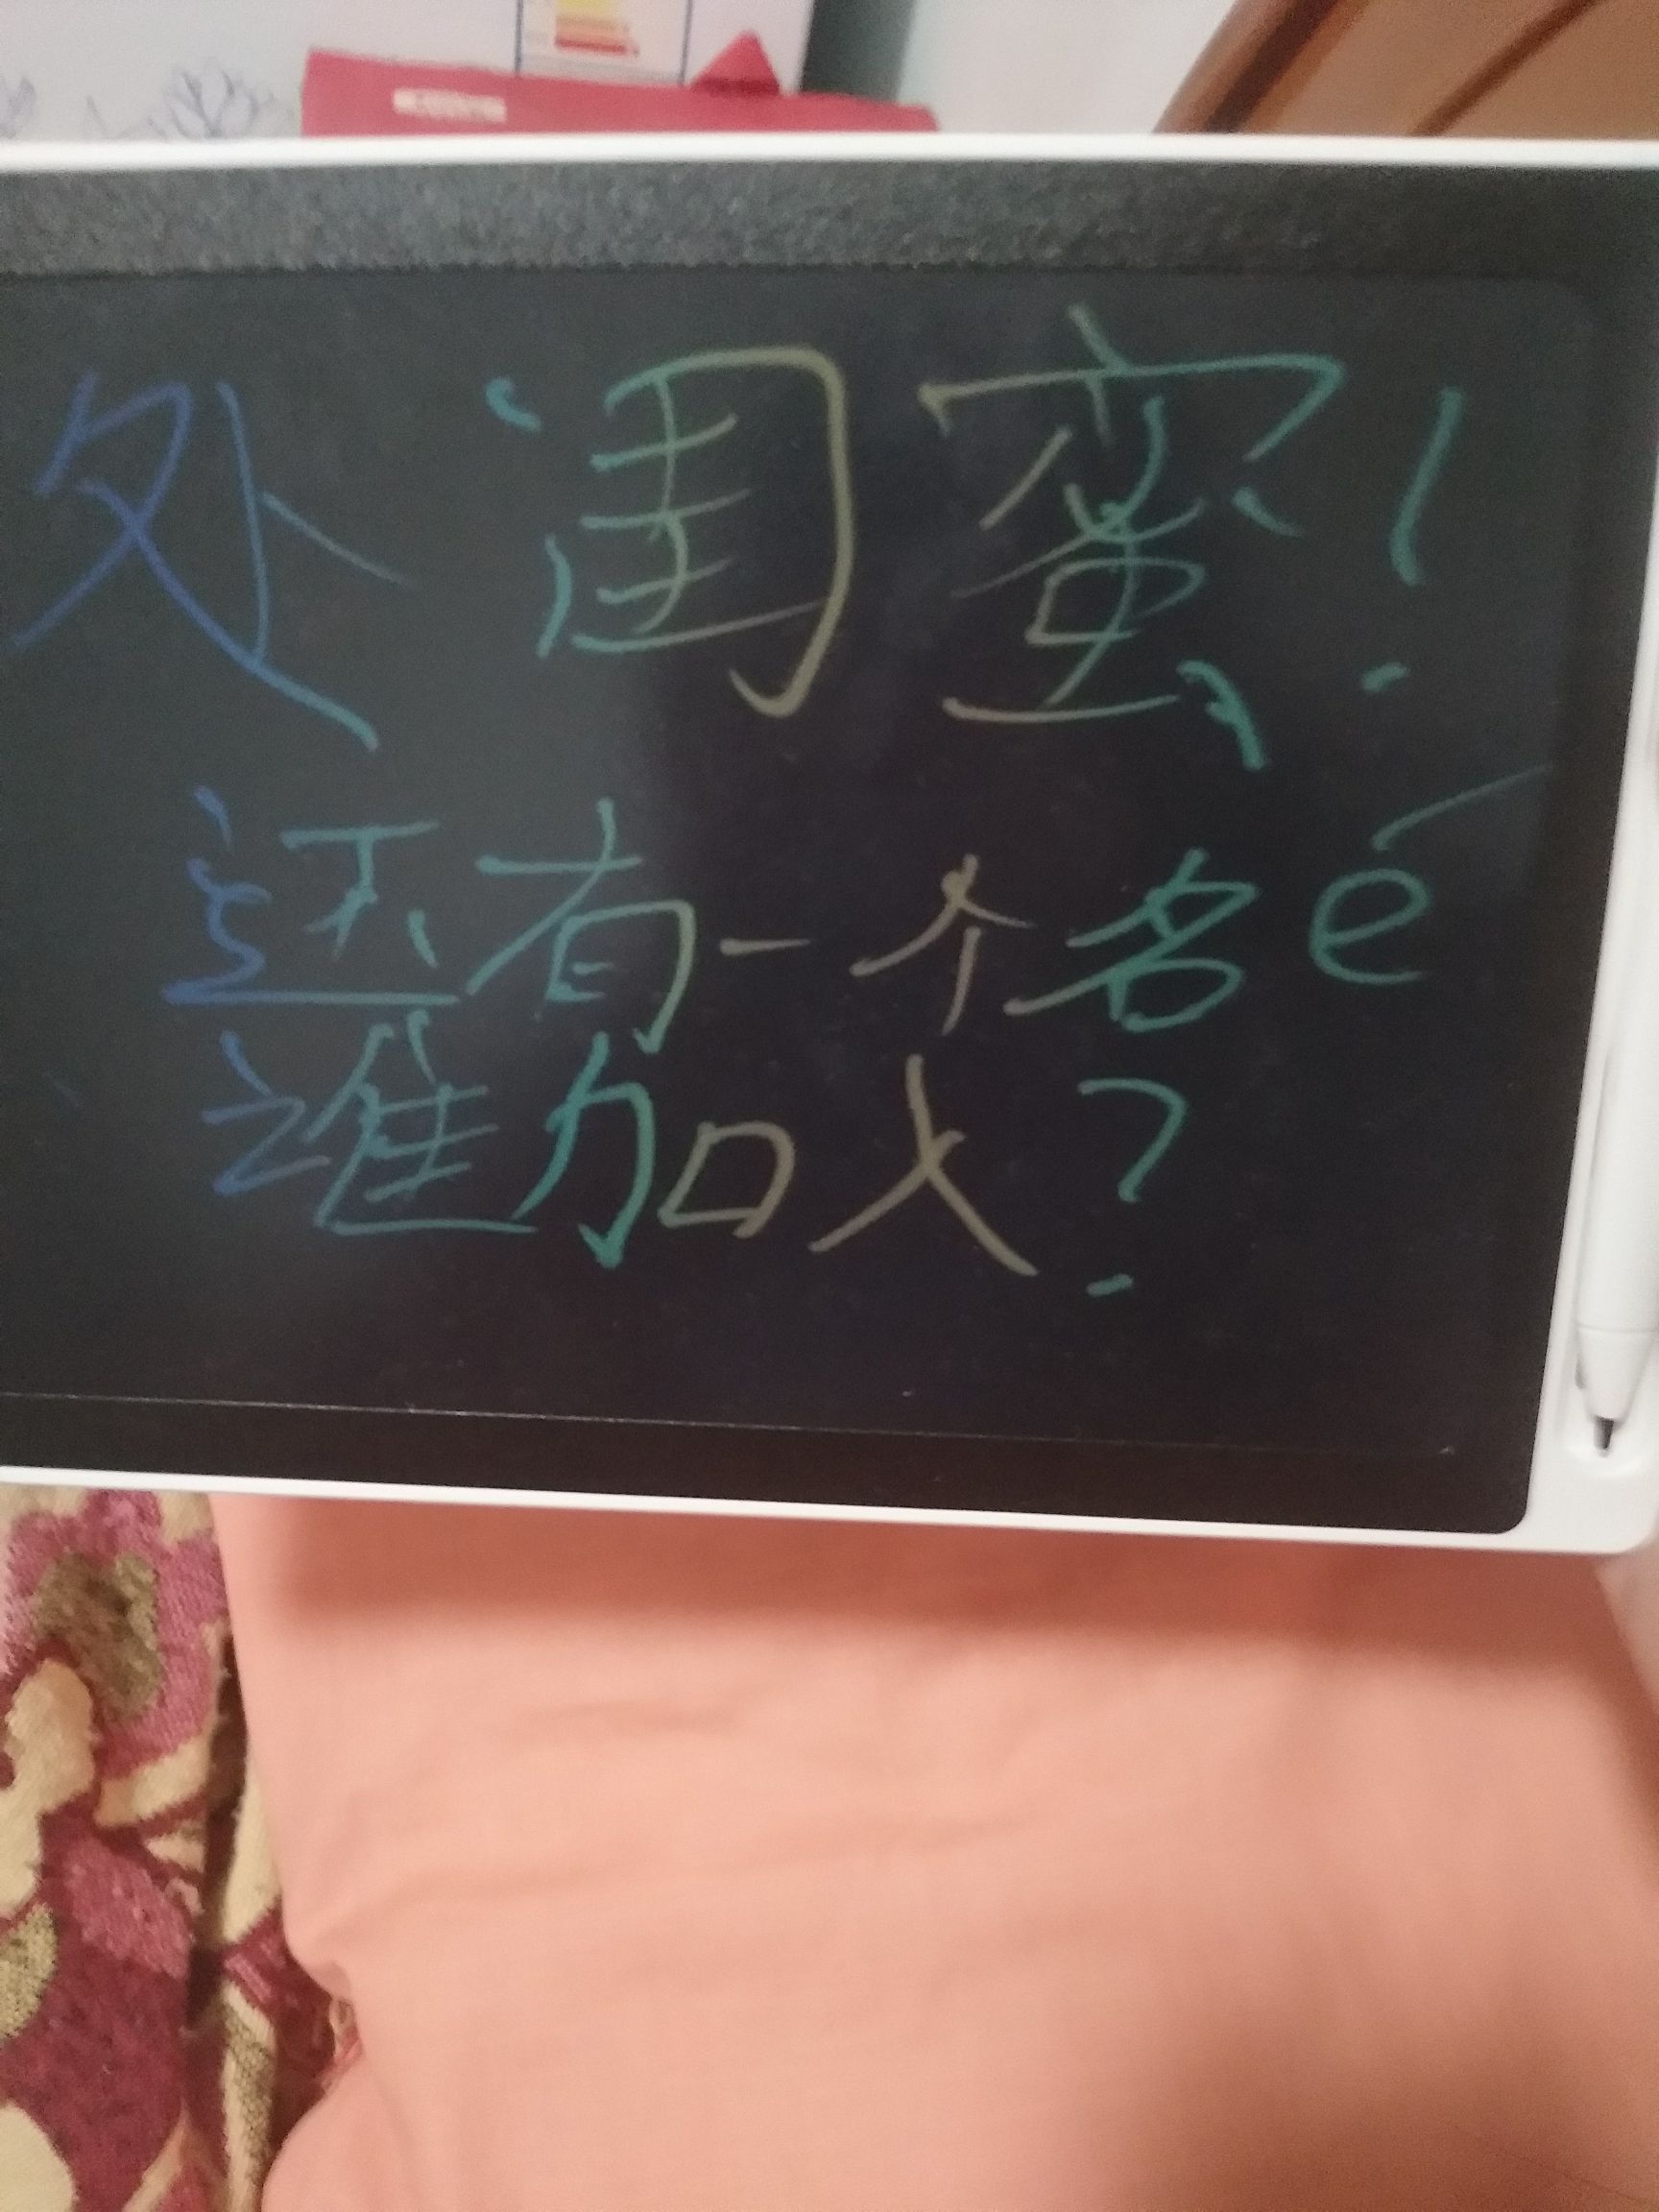 处闺蜜!
还有一个名é
谁加入?